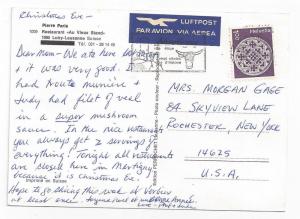 Christmas Eve -
Pierre Paris
1099 Restaurant «du Vieux Stand»
1080 Lutry-Lausanne Suisse
Tél. 021 - 28 14 49
LUFTPOST
PAR AVION VIA AEREA
Helvetia
Dear Mom - We ate here last night
& it was very good. I
had trout meunière &
Judy had filet of veal
in a super mushroom
sauce. In the nice restaurants
you always get 2 servings of
everything! Tonight all restaurants
are closed here in Martigny
because it is Christmas Eve!
Imprimé en Suisse
Hope to go skiing this week at Verbier
at least once
MRS. MORGAN GAGE
84 SKYVIEW LANE
ROCHESTER, NEW YORK
14625
U.S.A.